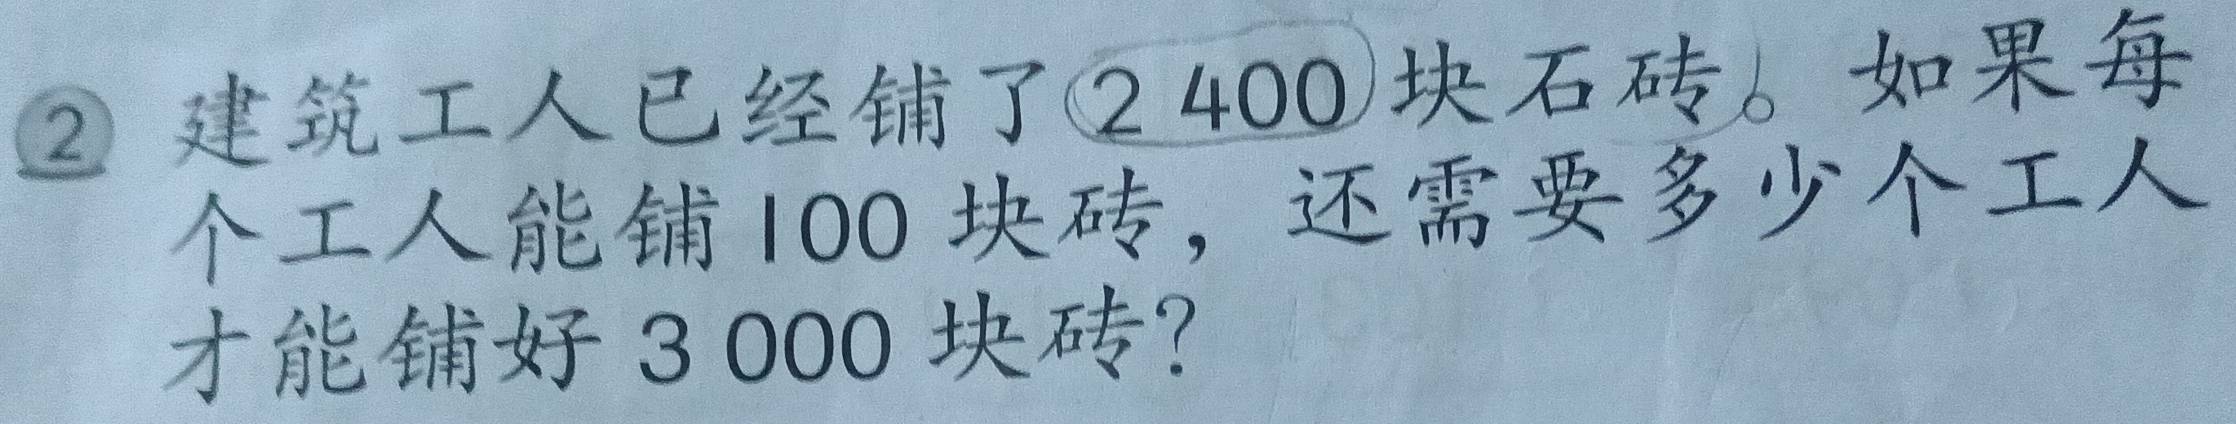 ② 建筑工人已经铺了2 400块石砖。如果每
个工人能铺100 块砖，还需要多少个工人
才能铺好3 000 块砖？